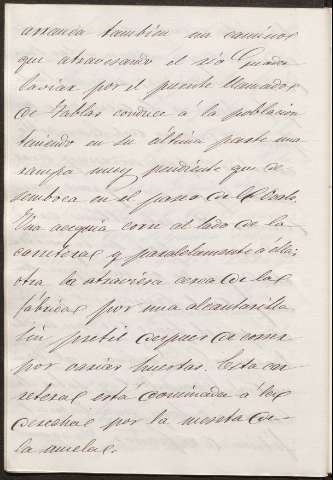 arranca tambien un camino
que atravesando el rio Guada
laviar por el puente llamado
de tablas conduce á la poblacion
teniendo en su última parte una
rampa muy pendiente que de
semboca en el paseo del Ovalo.
Una acequia corre al lado de la
carretera y paralelamente á ella;
otra la atraviesa cerca de la
fabrica por una alcantarilla
sin pretil despues de correr
por varias huertas. Esta car
retera está dominada á la
derecha por la meseta de
la muela.